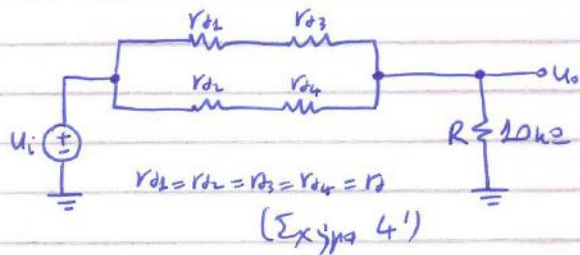 rd1 rd3
rd2 rd4
Uo
Ui
R 10kΩ
rd1 = rd2 = rd3 = rd4 = rd
(Σχήμα 4')